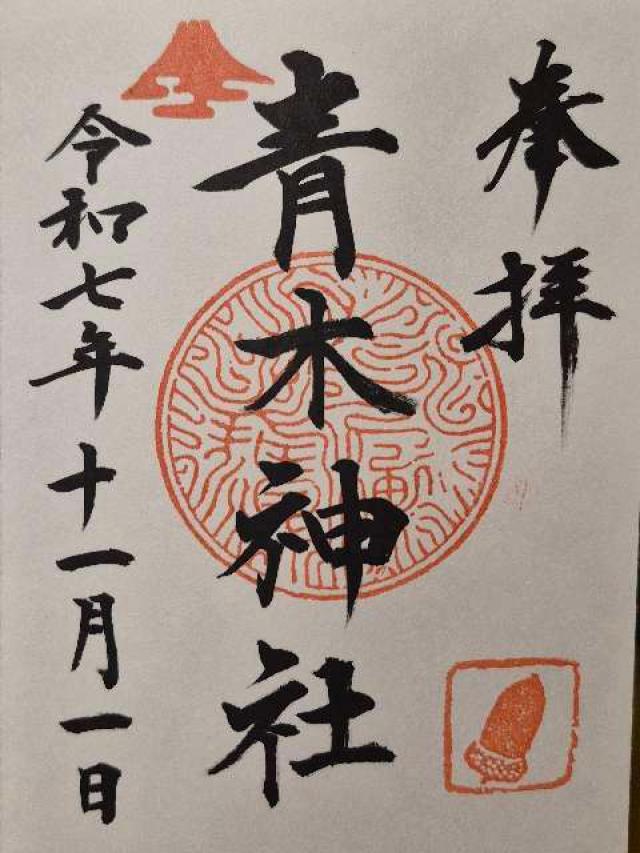 奉拝
青木神社
令和七年十一月一日